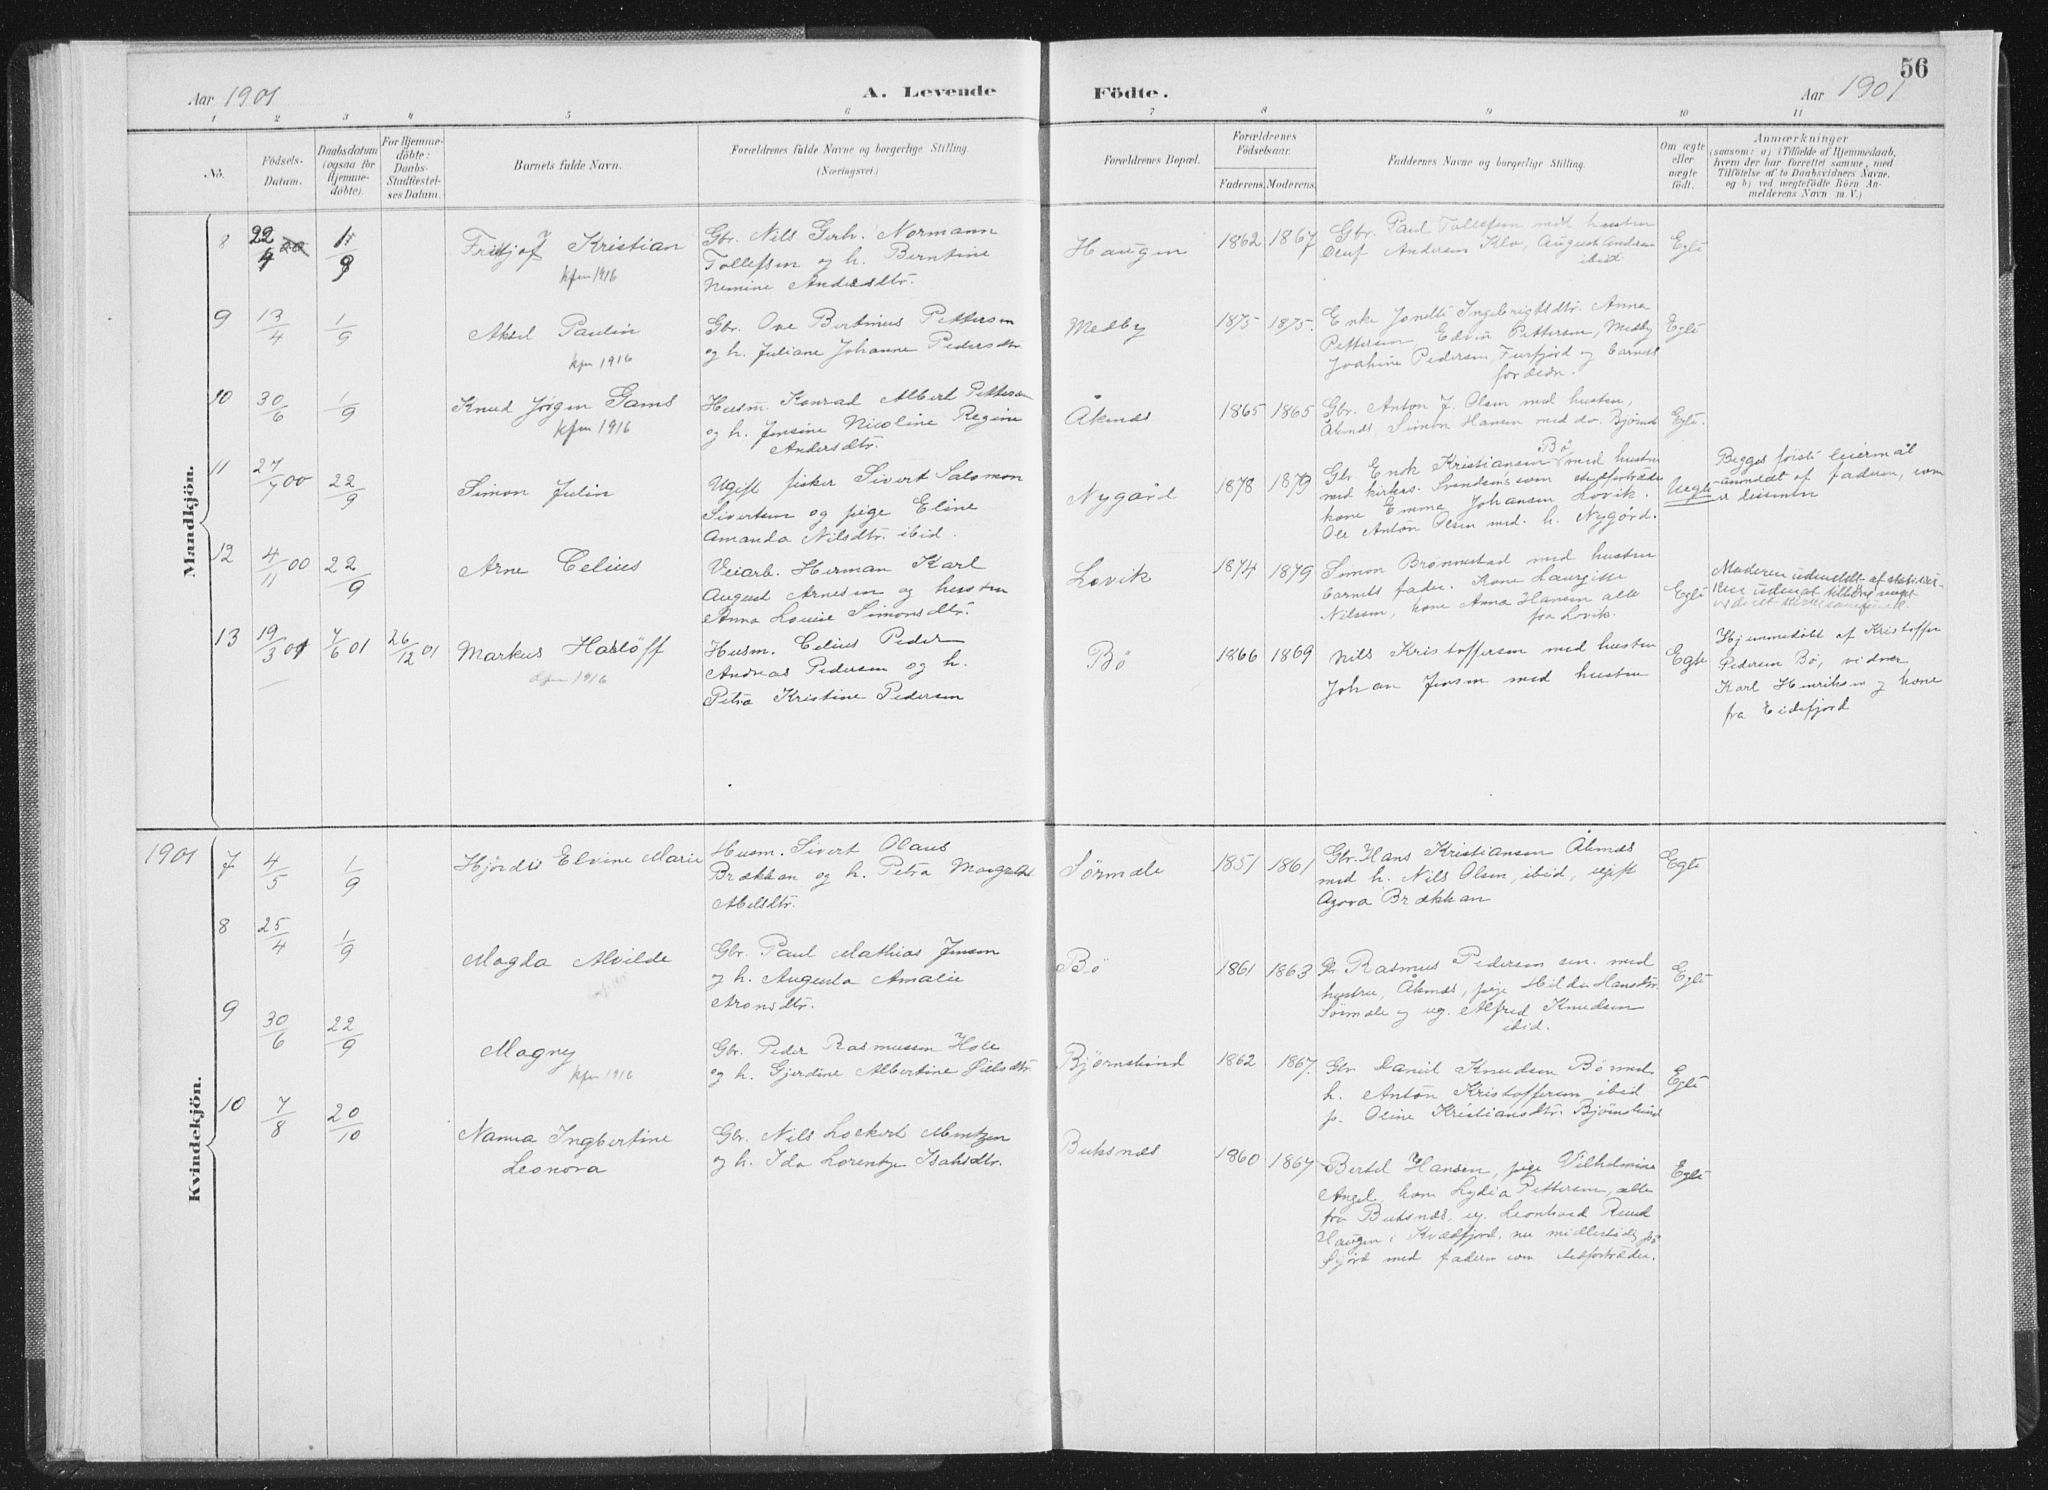 56
Aar 1901 A. Levende Fødte. Aar 1901
1 2 3 4 5 6 7 8 9 10 11
No.
Fødsels-Datum.
Daabsdatum (ogsaa for Hjemmedøbte).
For Hjemmedøbte: Daabs-Stadfæstelses Datum.
Barnets fulde Navn.
Forældrenes fulde Navne og borgerlige Stilling.
(Næringsvei.)
Forældrenes Bopæl.
Forældrenes Fødselsaar.
Faderens. Moderens.
Faddernes Navne og borgerlige Stilling.
Om ægte eller uægte født.
Anmærkninger
(saasom: a) i Tilfælde af Hjemmedaab,
hvem der har forrettet samme, med
Tilføielse af to Daabsvidners Navne.
og b) ved uægtefødte Børn Anmelderens Navn m. V.)
Mandkjøn.
8 22/4 1/9 Fritjof Kristian
kfm 1916
Gbr. Nils Gerh. Normann
Tollefsen og h. Berntine
Nemine Andersdtr.
Haugen 1862 1867
Gbr. Paul Tollefsen med hustru
Oluf Andersen Klo, August Andersen
ibid
Egte
9 13/4 1/9 Aksel Paulin
kfm 1916
Gbr. Ove Bertinus Pettersen
og h. Juliane Johanne Pedersdtr.
Medby 1875 1875.
Enke Jonette Ingebrigtsdtr. Anna
Pettersen Edvin Pettersen, Medby
Joakine Pedersen, Furfjord og barnets
forældr.
Egte
10 30/6 1/9 Knud Jørgen Gams
kfm 1916
Husm. Konrad Albert Pettersen
og h. Jensine Nicoline Regine
Andersdtr.
Åknæs 1865 1865
Gbr. Anton J. Olsen med hustru,
Åknæs, Simon Hansen med do. Bjørnds
Egte.
11 27/7 00 22/9 Simon Julin
Ugift fisker Sivert Salomon
Sivertsen og pige Eline
Amanda Nilsdtr. ibid.
Nygård 1878 1879
Gbr. Enok Kristiansen Bø med hustru
med kirkes. Svendsen som stedfortræder
kone Emma Johansen Lovik.
Ole Anton Olsen med h. Nygård.
Uegte
Begges første leiermål
anmeldt af faderen, som
er dissenter
12 4/11 00 22/9 Arne Celius
Veiarb. Herman Karl
August Arnesen og hustru
Anna Louise Simonsdtr.
Lovik 1874 1879
Simon Brønnestad med hustru
barnets fader. Kone Laurgitte
Nilssen, kone Anna Hansen alle
fra Lovik.
Egte
Moderen udmeldt af statskirken uden at tilhøre noget
13 19/3 01 7/6 01 26/12 01 Markus Hasløff
kfm 1916
Husm. Celius Peder
Andreas Pedersen og h.
Petra Kristine Pedersen
Bø 1866 1869
Nils Kristoffersen med hustru
Johan Jensen med hustru
Egte
Hjemmedøbt af Kristoffer
Pedersen Bø, vidner
Karl Henriksen og kone
fra Eidsfjord
Kvindekjøn.
1901 7 4/5 1/9 Hjørdis Elvine Marie
Husm. Sivert Olaus
Brækkan og h. Petra Margrethe
Abelsdtr.
Sørmæle 1851 1861
Gbr. Hans Kristiansen Åknæs
med h. Nils Olsen, ibid, ugift
Agora Brækkan
Egte
8 25/4 1/9 Magda Alvilde
Gbr. Paul Mathias Jensen
og h. Augusta Amalie
Aronsdtr.
Bø 1861 1863
Rasmus Pedersen sen. med
hustru, Åknæs, pige Hilda Hansdtr.
Sørmæle og ug. Alfred Knudsen
ibid.
Egte
9 30/6 22/9 Magny
kfm 1916
Gbr. Peder Rasmussen Hole
og h. Gjerdine Albertine Nilsdtr.
Bjørnslund 1862 1867.
Gbr Daniel Knudsen Bø med
h. Anton Kristoffersen ibid
p. Oline Kristiansdtr. Bjørnslund
Egte
10 7/8 20/10 Nanna Ingbertine
Leonora
Gbr. Nils Lockert Mentzen
og h. Ida Lorentze Isaksdtr.
Buksnæs 1860 1867
Bertel Hansen, pige Vilhelmine
Angel, kone Lydia Pettersen, alle
fra Buksnæs, ug. Leonhard Ruud
Haugen i Kvædfjord, nu midlertidig på
med faderen som stedfortræder.
Egte